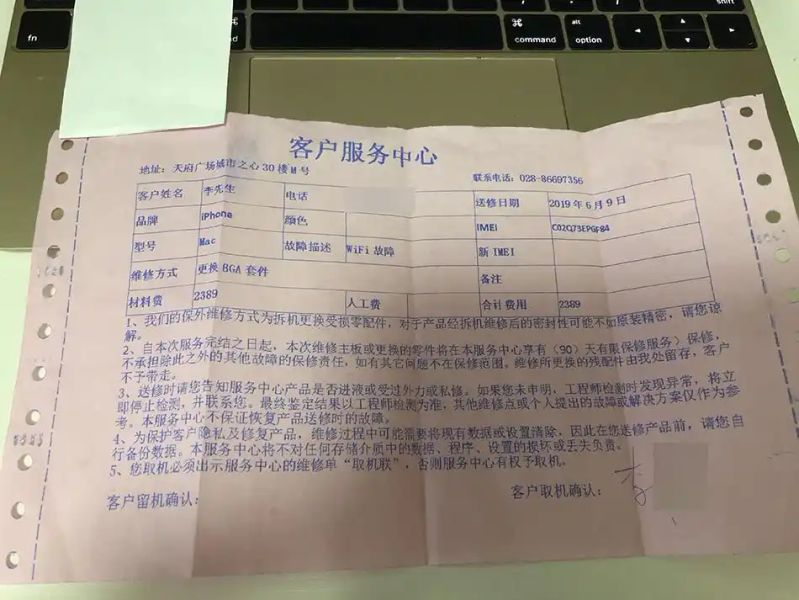 fn
⌘
⌘
command
alt
option
shift
客户服务中心
地址：天府广场城市之心30楼M号
联系电话：028-86697356
客户姓名 李先生 电话 送修日期 2019年6月9日
品牌 iPhone 颜色 IMEI C02Q73EPGF84
型号 Mac 故障描述 WiFi故障 新IMEI
维修方式 更换BGA套件 备注
材料费 2389 人工费 合计费用 2389
1、我们的保外维修方式为拆机更换受损零配件，对于产品经拆机维修后的密封性可能不如原装精密，请您谅
解。
2、自本次服务完结之日起，本次维修主板或更换的零件将在本服务中心享有（90）天有限保修服务）保修，
不承担除此之外的其他故障的保修责任，如有其它问题不在保修范围。维修所更换的残配件由我处留存，客户
不予带走。
3、送修时请您告知服务中心产品是否进液或受过外力或私修。如果您未申明，工程师检测时发现异常，将立
即停止检测，并联系您。最终鉴定结果以工程师检测为准，其他维修点或个人提出的故障或解决方案仅作为参
考。本服务中心不保证恢复产品送修时的故障。
4、为保护客户隐私及修复产品，维修过程中可能需要将现有数据或设置清除，因此在您送修产品前，请您自
行备份数据。本服务中心将不对任何存储介质中的数据、程序、设置的损坏或丢失负责。
5、您取机必须出示服务中心的维修单“取机联”，否则服务中心有权不予取机。
客户留机确认：
客户取机确认： 李